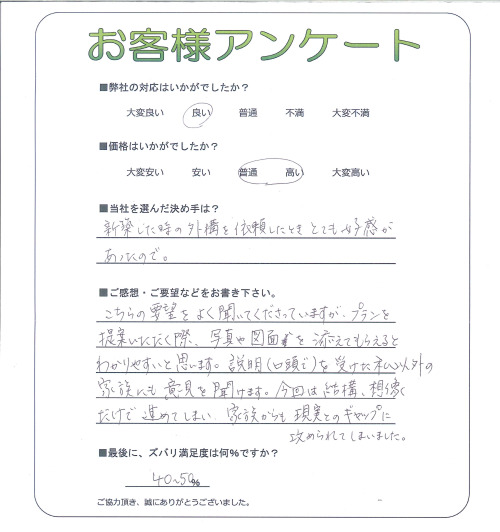 お客様アンケート
■弊社の対応はいかがでしたか？
大変良い 良い 普通 不満 大変不満
■価格はいかがでしたか？
大変安い 安い 普通 高い 大変高い
■当社を選んだ決め手は？
新築した時の外構を依頼したときとても好感が
あったので。
■ご感想・ご要望などをお書き下さい。
こちらの要望をよく聞いてくださっていますが、プランを
提案いただく際、写真や図面を添えてもらえると
わかりやすいと思います。説明(口頭で)を受けた私以外の
家族にも意見を聞けます。今回は結構、想像
だけで進めてしまい、家族からも現実とのギャップに
攻められてしまいました。
■最後に、ズバリ満足度は何%ですか？
40~50%
ご協力頂き、誠にありがとうございました。